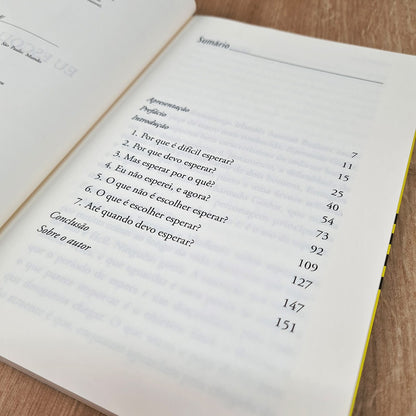 São Paulo
Sumário
Apresentação 7
Prefácio 11
Introdução 15
1. Por que é difícil esperar? 25
2. Por que devo esperar? 40
3. Mas esperar por o quê? 54
4. Eu não esperei, e agora? 73
5. O que não é escolher esperar? 92
6. O que é escolher esperar? 109
7. Até quando devo esperar? 127
Conclusão 147
Sobre o autor 151